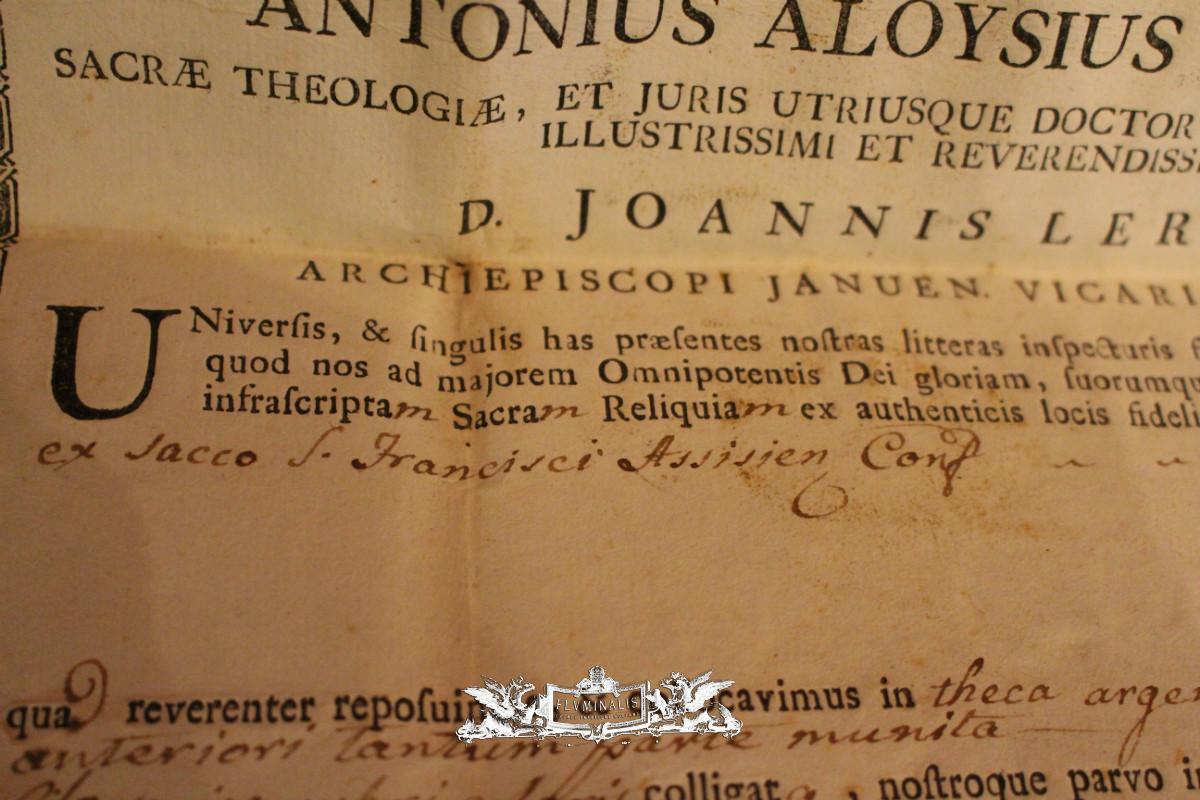 ANTONIUS ALOYSIUS
SACRÆ THEOLOGIÆ, ET JURIS UTRIUSQUE DOCTOR
ILLUSTRISSIMI ET REVERENDISS
D. JOANNIS LER
ARCHIEPISCOPI JANUEN. VICARI
UNiverſis, & ſingulis has præſentes noſtras litteras inſpecturis
quod nos ad majorem Omnipotentis Dei gloriam, ſuorumqu
infraſcriptam Sacram Reliquiam ex authenticis locis fideli
ex sacco S. Francisci Assisien Conf
FLVMINALIS
qua reverenter repoſui cavimus in theca arge
anteriori tantum parte munita
colligat , noſtroque parvo